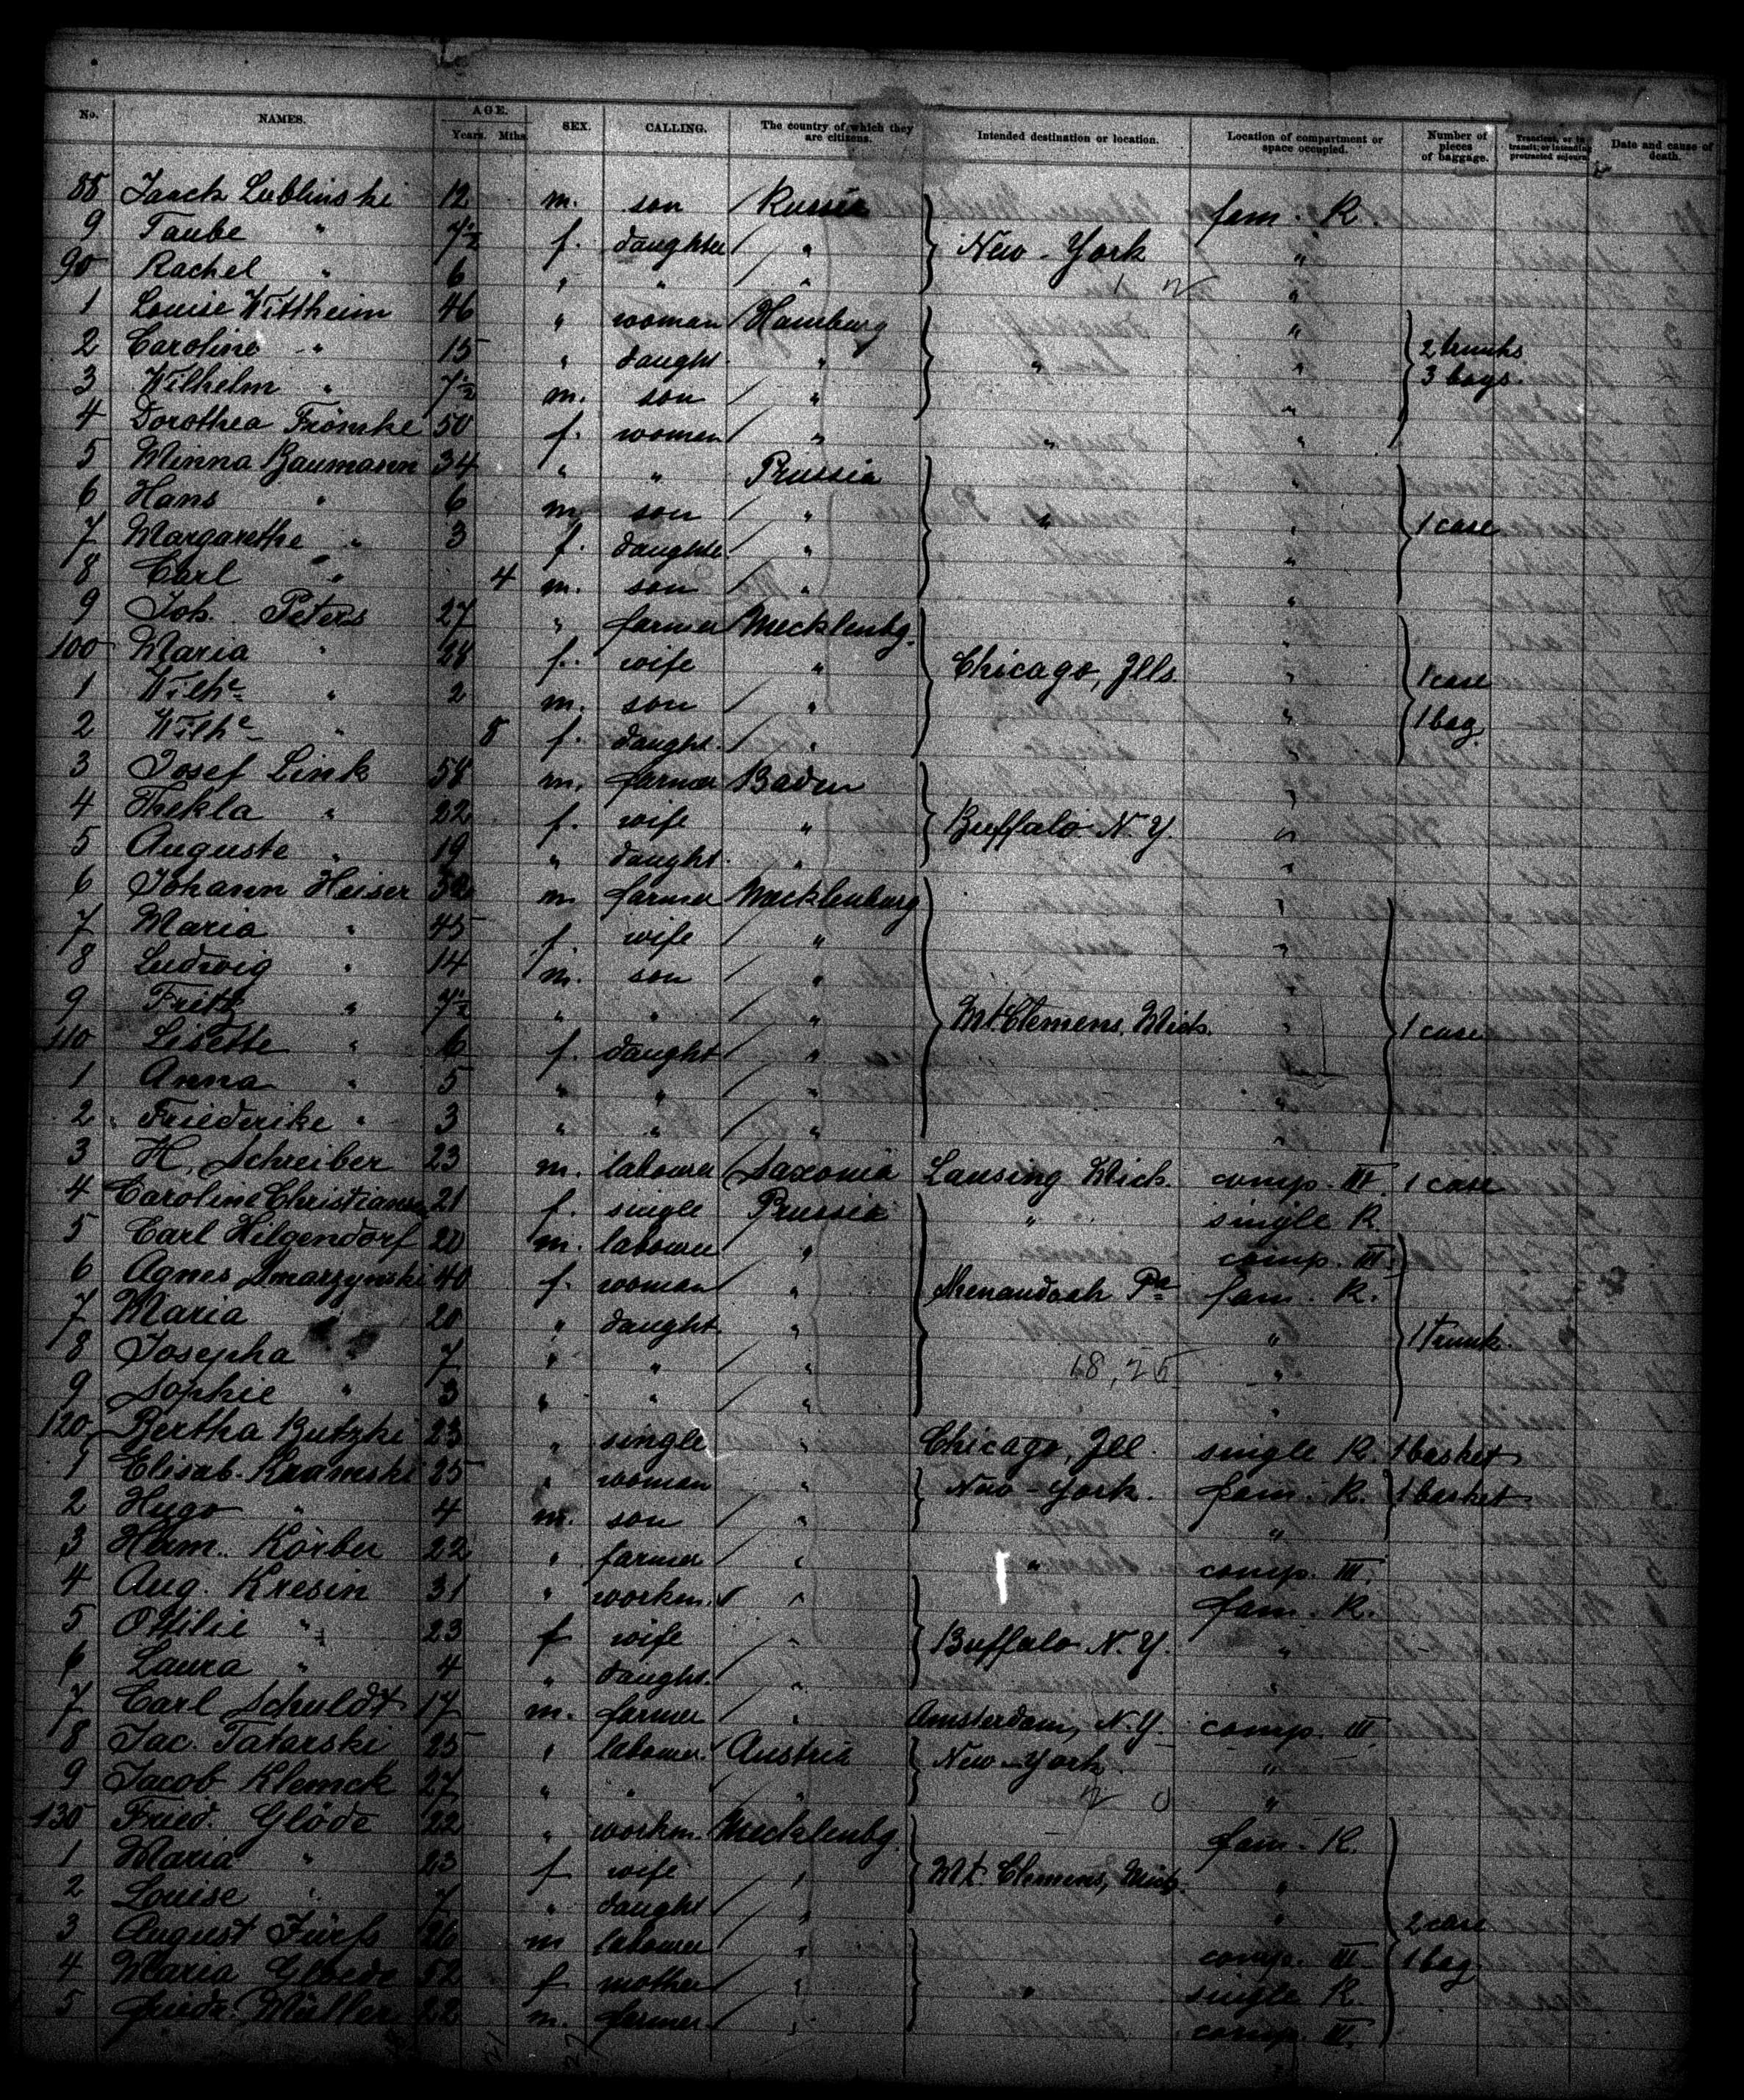 No. NAMES. AGE. Years. Mths. SEX. CALLING. The country of which they are citizens. Intended destination or location. Location of compartment or space occupied. Number of pieces of baggage. Transient, or in transit, or intending protracted sojourn. Date and cause of death.
88 Isaack Lublinski 12 m. son Russia fam. R.
9 Taube " 7½ f. daughter " New-York "
90 Rachel " 6 " " " "
1 Louise Wittheim 46 " woman Hamburg "
2 Caroline " 15 " daught. " " " 2 trunks
3 Wilhelm " 7½ m. son " " 3 bags.
4 Dorothea Frömke 50 f. women " " "
5 Minna Baumann 34 " " Prussia "
6 Hans " 6 m. son " " " 1 case
7 Margarethe " 3 f. daughte " "
8 Carl " 4 m. son " "
9 Joh. Peters 27 " farmer Mecklenbg. "
100 Maria " 28 f. wife " Chicago, Ills. " 1 case
1 Wilh. " 2 m. son " " 1 bag
2 Wilhe " 8 f. daught. " "
3 Josef Link 58 m. farmer Baden "
4 Thekla " 22 f. wife " Buffalo N.Y. "
5 Auguste " 19 " daught. " "
6 Johann Heiser m farmer Mecklenburg "
7 Maria " 45 f. wife " "
8 Ludwig " 14 m. son "
9 Fritz " 7½ " " " Mt Clemens, Mich. " 1 case
110 Lisette " 6 f. daught "
1 Anna " 5 " " " "
2 Friederike " 3 " " " "
3 H. Schreiber 23 m. labourer Saxonia Lansing Mich. comp. III. 1 case
4 Caroline Christiansen 21 f. single Prussia " single R
5 Carl Hilgendorf 20 m. labourer " comp. III.
6 Agnes Smarzynski 40 f. woman " Shenandoah Pa fam. R.
7 Maria 20 " daught. " " 1 Trunk.
8 Josepha " 7 " " " 18, 25 "
9 Sophie " 3 " " " "
120 Bertha Butzki 23 " single " Chicago, Ill. single R. 1 basket
1 Elisab. Kramski 25 " woman " New-York. fam. R. 1 basket
2 Hugo " 4 m. son " "
3 Herm. Körber 22 " farmer " " comp. III.
4 Aug. Kresin 31 " workm. " fam. R.
5 Ottilie " 23 f wife " Buffalo N.Y. "
6 Laura " 4 " daught. " "
7 Carl Schuldt 17 m. farmer " Amsterdam, N.Y. comp. III
8 Jac. Tatarski 25 " labourer Austria New-York "
9 Jacob Klemck 27 " " " "
130 Fried. Glöde 22 " workm. Mecklenbg. fam. R.
1 Maria " 23 f wife " Mt. Clemens, Mich. "
2 Louise " 7 " daught " " 2 case
3 August Fürfs 26 m labourer " comp. III 1 bag
4 Maria Gloede 52 f mother " " single R.
5 Friedr. Müller 22 m. farmer " comp. III.